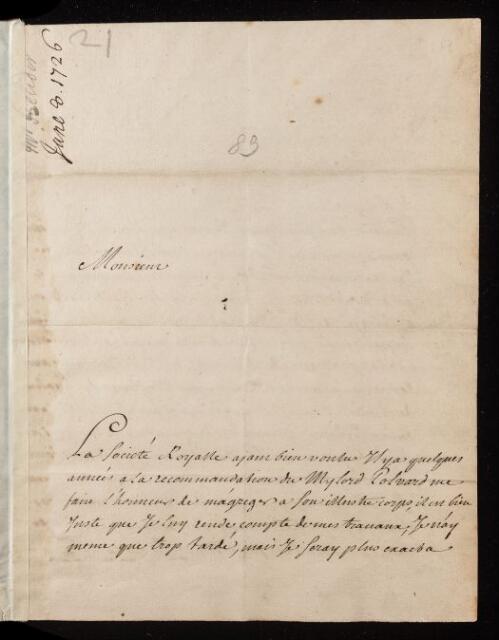 21
June 8. 1726
89
Monsieur
La Societé Royalle ajant bien voulu Il ya quelques
année a la recommandation du Mylord me
faire l'honneur de m'agreger a son illustre corps, il est bien
Juste que Je luy rende compte de mes travaux, Je n'ay
meme que trop tardé, mais Je seray plus exact a